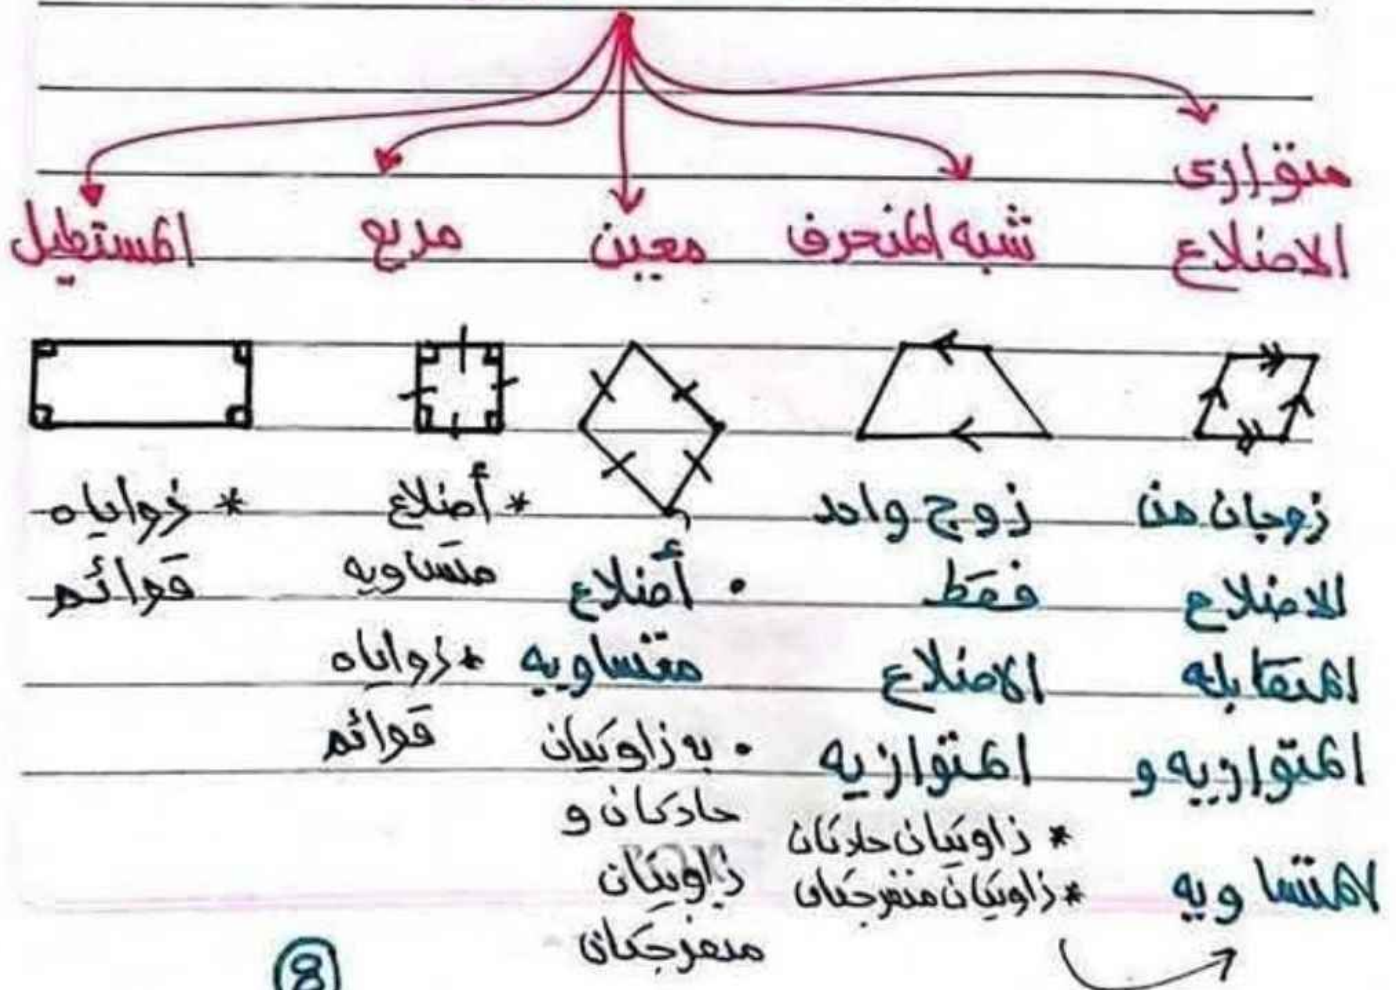 متوازى
الاضلاع
شبه المنحرف
معين
مربع
المستطيل
زوجان من
الاضلاع
المتقابله
المتوازيه و
المتساويه
زوج واحد
فقط
الاضلاع
المتوازيه
* زاويتان حادتان
* زاويتان منفرجتان
• أضلاع
متساويه
• به زاويتان
حادتان و
زاويتان
منفرجتان
* أضلاع
متساويه
* زواياه
قوائم
* زواياه
قوائم
8